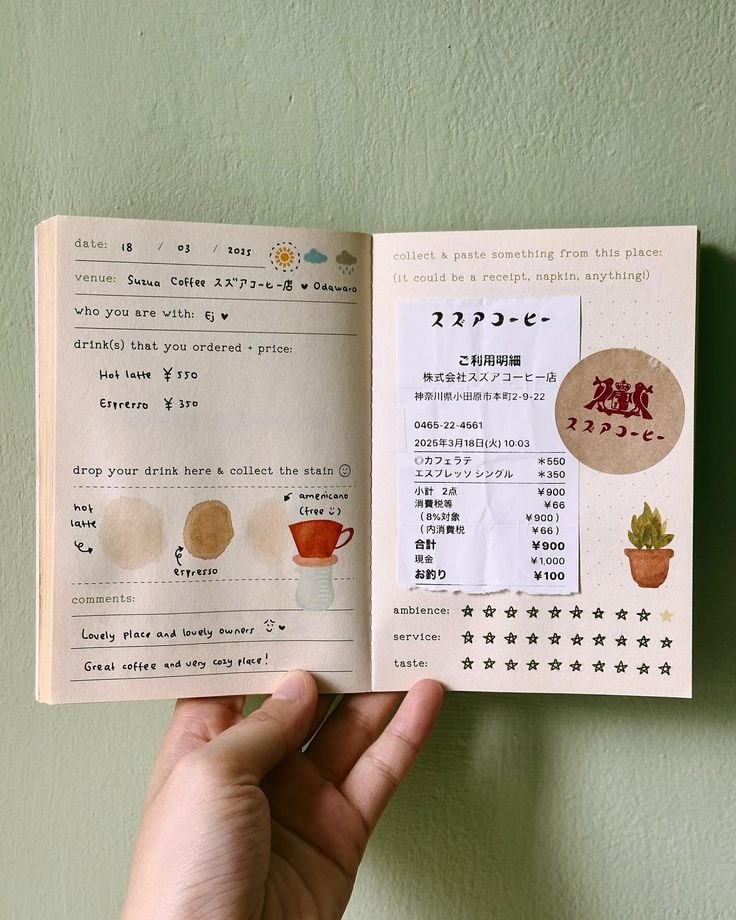 date: 18 / 03 / 2025
venue: Suzua Coffee スズアコーヒー店 ♥ Odawara
who you are with: Ej ♥
drink(s) that you ordered + price:
Hot latte ¥550
Espresso ¥350
drop your drink here & collect the stain ☺
hot
latte
espresso
americano
(free ☺)
comments:
Lovely place and lovely owners ♥
Great coffee and very cozy place!
collect & paste something from this place:
(it could be a receipt, napkin, anything!)
スズアコーヒー
ご利用明細
株式会社スズアコーヒー店
神奈川県小田原市本町2-9-22
0465-22-4561
2025年3月18日(火) 10:03
◎カフェラテ ＊550
エスプレッソ シングル ＊350
小計 2点 ¥900
消費税等 ¥66
(8%対象 ¥900)
(内消費税 ¥66)
合計 ¥900
現金 ¥1,000
お釣り ¥100
スズアコーヒー
ambience: ☆☆☆☆☆☆☆☆☆★
service: ☆☆☆☆☆☆☆☆☆☆
taste: ☆☆☆☆☆☆☆☆☆☆